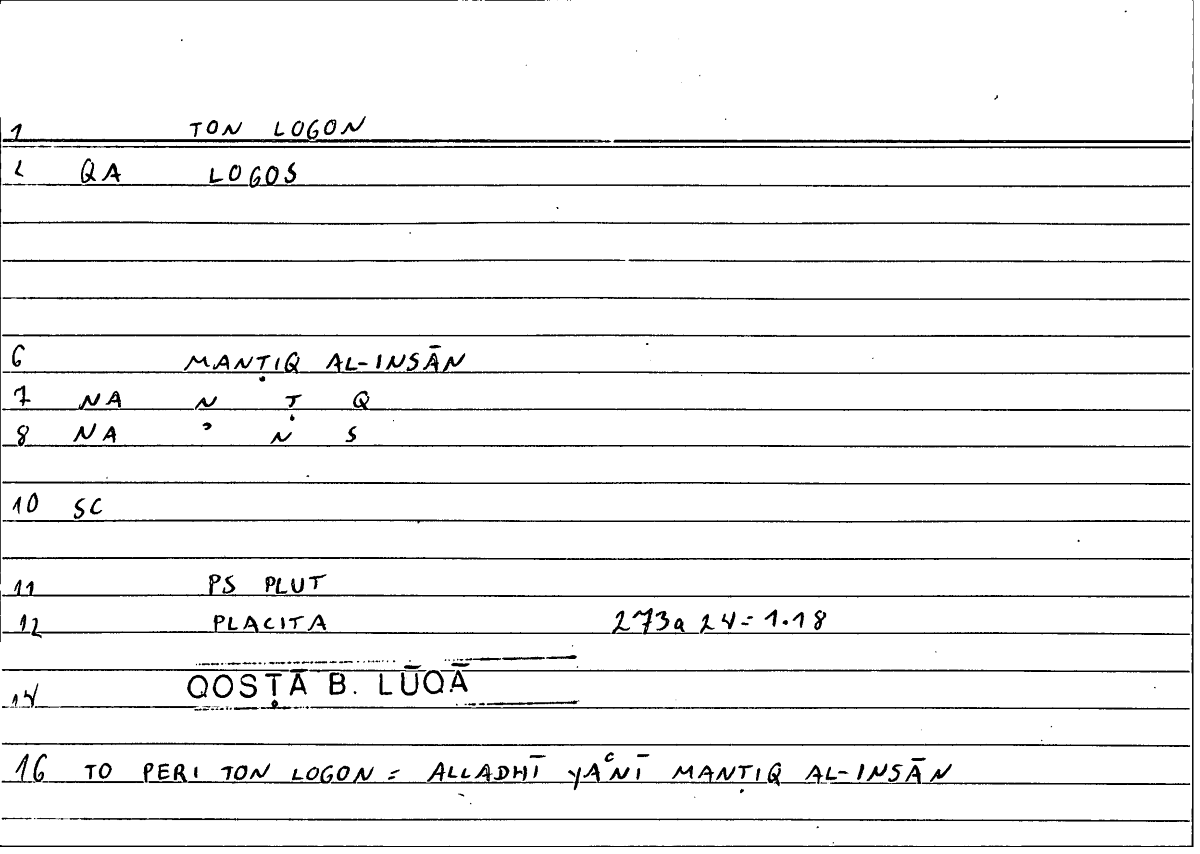 1 TON LOGON
2 QA LOGOS
6 MANṬIQ AL-INSĀN
7 NA N Ṭ Q
8 NA ʾ N S
10 SC
11 PS PLUT
12 PLACITA 273a 24 = 1.18
14 QOSṬĀ B. LŪQĀ
16 TO PERI TON LOGON = ALLADHĪ YAʿNĪ MANṬIQ AL-INSĀN